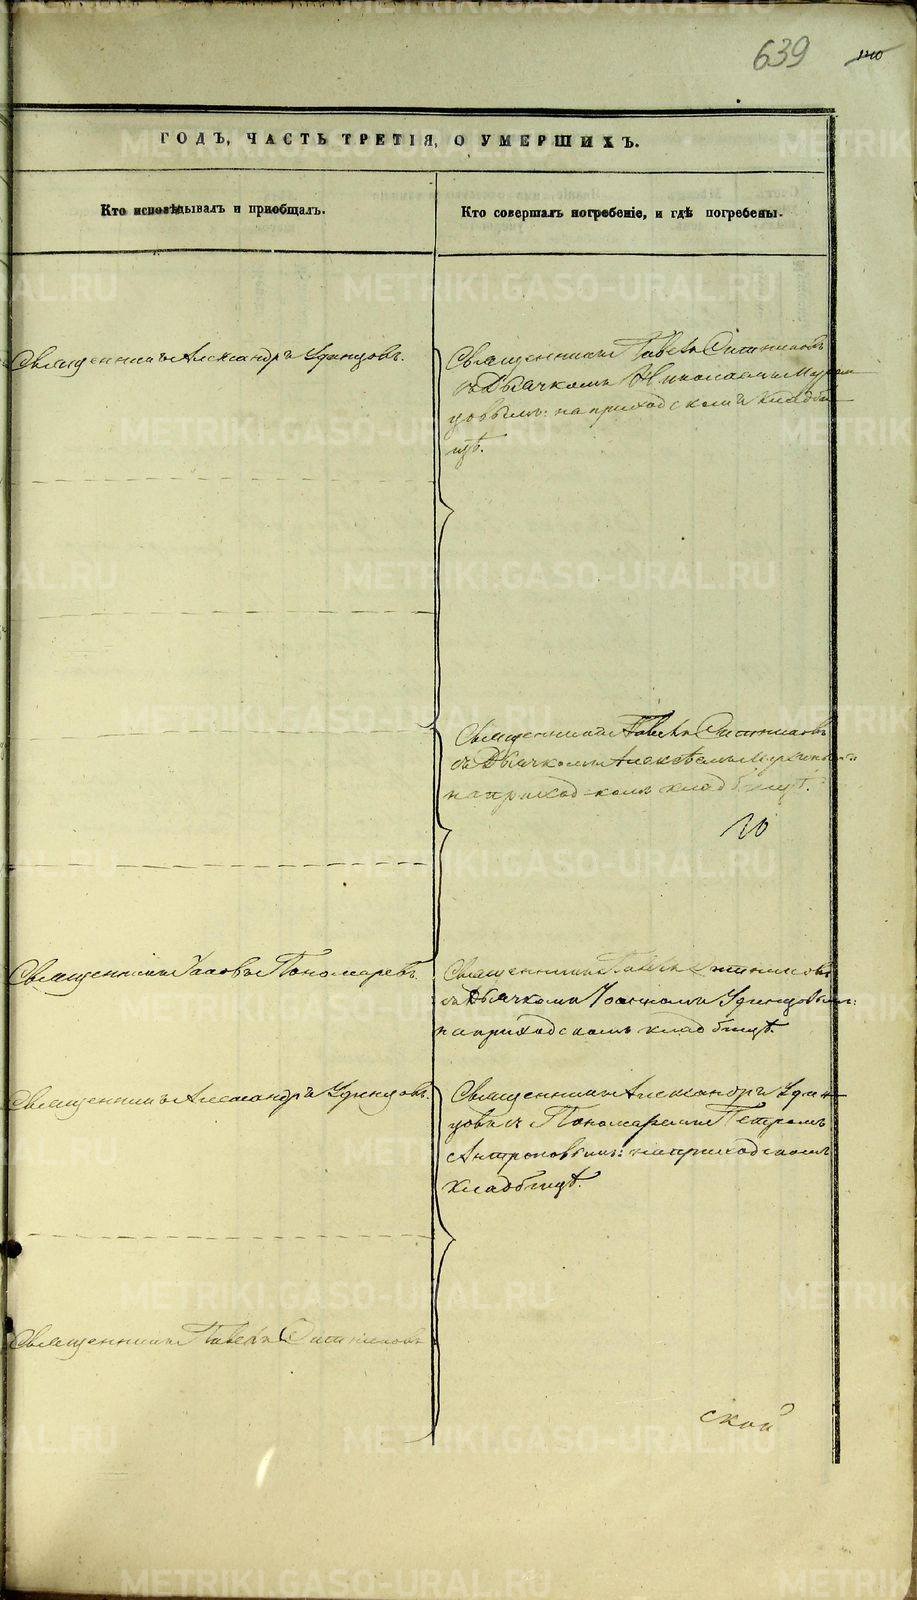 639 140
ГОДЪ, ЧАСТЬ ТРЕТІЯ, О УМЕРШИХЪ.
Кто исповѣдывалъ и пріобщалъ.
Кто совершалъ погребеніе, и гдѣ погребены.
Священникъ Александръ Удинцовъ.
Священникъ Павелъ Ситниковъ
съ Дьячкомъ Николаемъ
цовымъ: на приходскомъ кладби
щѣ.
Священникъ Павелъ Ситниковъ
съ Дьячкомъ Алексѣемъ
на приходскомъ кладбищѣ.
Священникъ Іаковъ Пономаревъ.
Священникъ Павелъ Ситниковъ
съ Дьячкомъ Іоанномъ Удинцовымъ:
на приходскомъ кладбищѣ.
Священникъ Александръ Удинцовъ.
Священникъ Александръ Удин
цовъ съ Пономаремъ Петромъ
Антроповымъ: на приходскомъ
кладбищѣ.
Священникъ Павелъ Ситниковъ
ской
METRIKI.GASO-URAL.RU